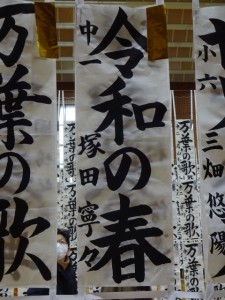 令和の春
中一 塚田寧々
万葉の歌
小六 三畑悠陽
万葉の歌
万葉の歌
万葉の歌